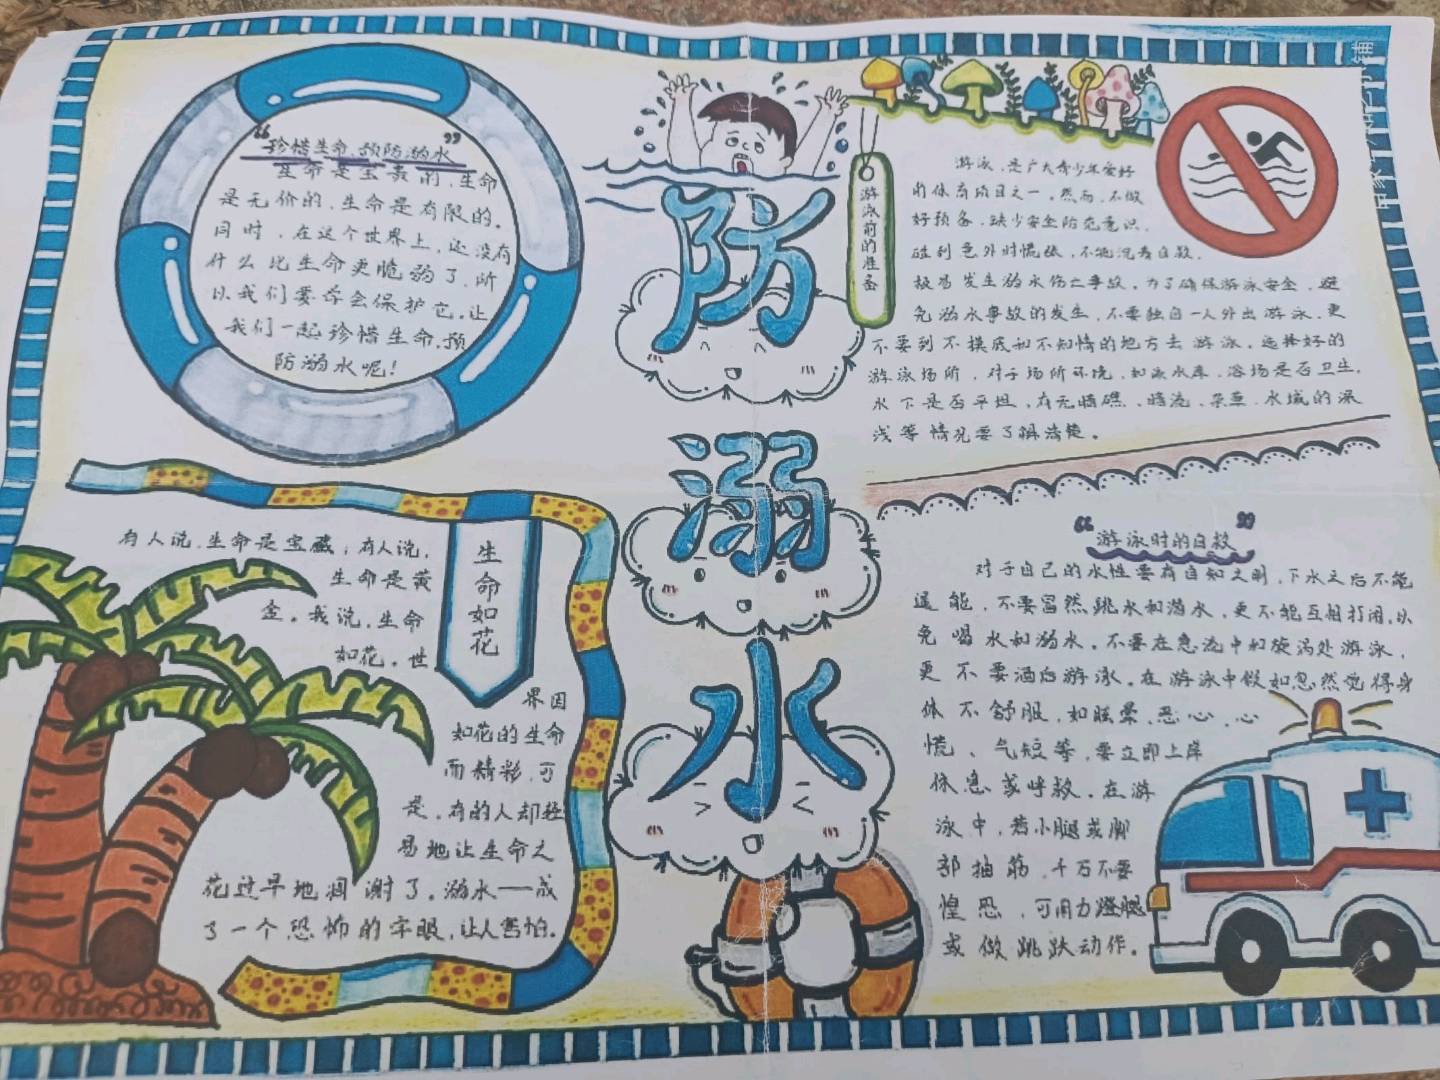 “珍惜生命,预防溺水”
生命是宝贵的,生命
是无价的,生命是有限的。
同时,在这个世界上,还没有
什么比生命更脆弱了,所
以我们要学会保护它。让
我们一起珍惜生命,预
防溺水呢!
防
溺
水
游泳前的准备
游泳,是广大青少年爱好
的体育项目之一。然而,不做
好预备,缺少安全防范意识,
碰到意外时慌张,不能沉着自救,
极易发生溺水伤亡事故。为了确保游泳安全,避
免溺水事故的发生,不要独自一人外出游泳,更
不要到不摸底和不知情的地方去游泳。选择好的
游泳场所,对于场所环境,如该水库,浴场是否卫生,
水下是否平坦,有无暗礁、暗流、杂草,水域的深
浅等情况要了解清楚。
生命如花
有人说,生命是宝藏;有人说,
生命是黄
金。我说,生命
如花。世
界因
如花的生命
而精彩,可
是,有的人却轻
易地让生命之
花过早地凋谢了。溺水——成
了一个恐怖的字眼,让人害怕。
“游泳时的自救”
对于自己的水性要有自知之明,下水之后不能
逞能,不要冒然跳水和潜水,更不能互相打闹,以
免喝水和溺水。不要在急流中和旋涡处游泳,
更不要酒后游泳。在游泳中假如忽然觉得身
体不舒服,如眩晕、恶心、心
慌、气短等,要立即上岸
休息或呼救。在游
泳中,若小腿或脚
部抽筋,千万不要
惶恐,可用力蹬腿
或做跳跃动作。